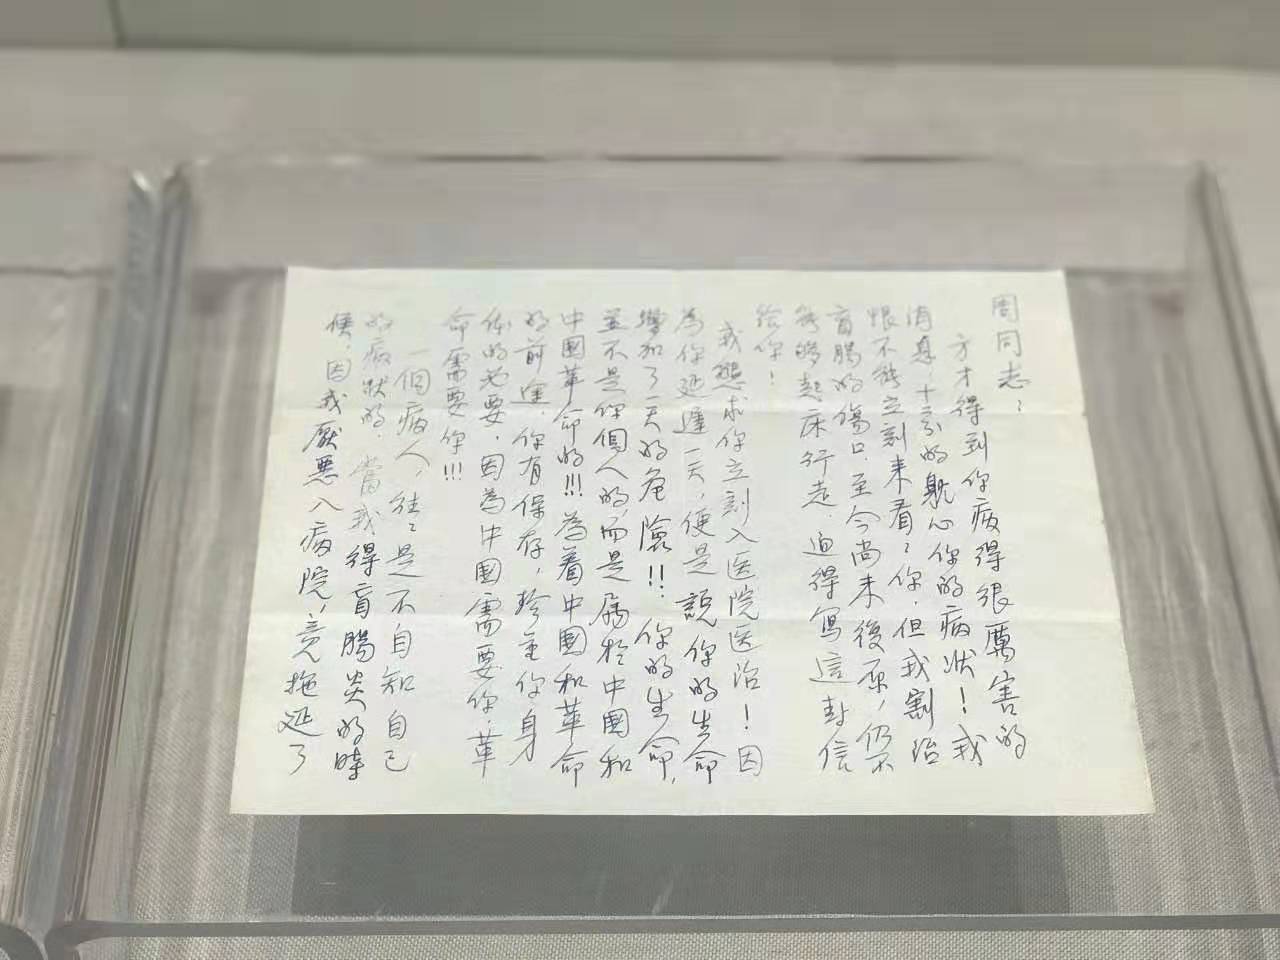 周同志：
方才得到你病得很厲害的
消息，十分的躭心你的病狀！我
恨不能立刻来看々你，但我割治
盲腸的傷口，至今尚未復原，仍不
能夠起床行走，迫得寫這封信
給你！
我懇求你立刻入医院医治！因
為你延遲一天，便是說你的生命
增加了一天的危險！！你的生命，
並不是你個人的，而是属於中國和
中國革命的!!!為着中國和革命
的前途，你有保存，珍重你身
体的必要，因為中國需要你，革
命需要你!!!
一個病人，往々是不自知自己
的病狀的，當我得盲腸炎的時
候，因我厭惡入病院，竟拖延了